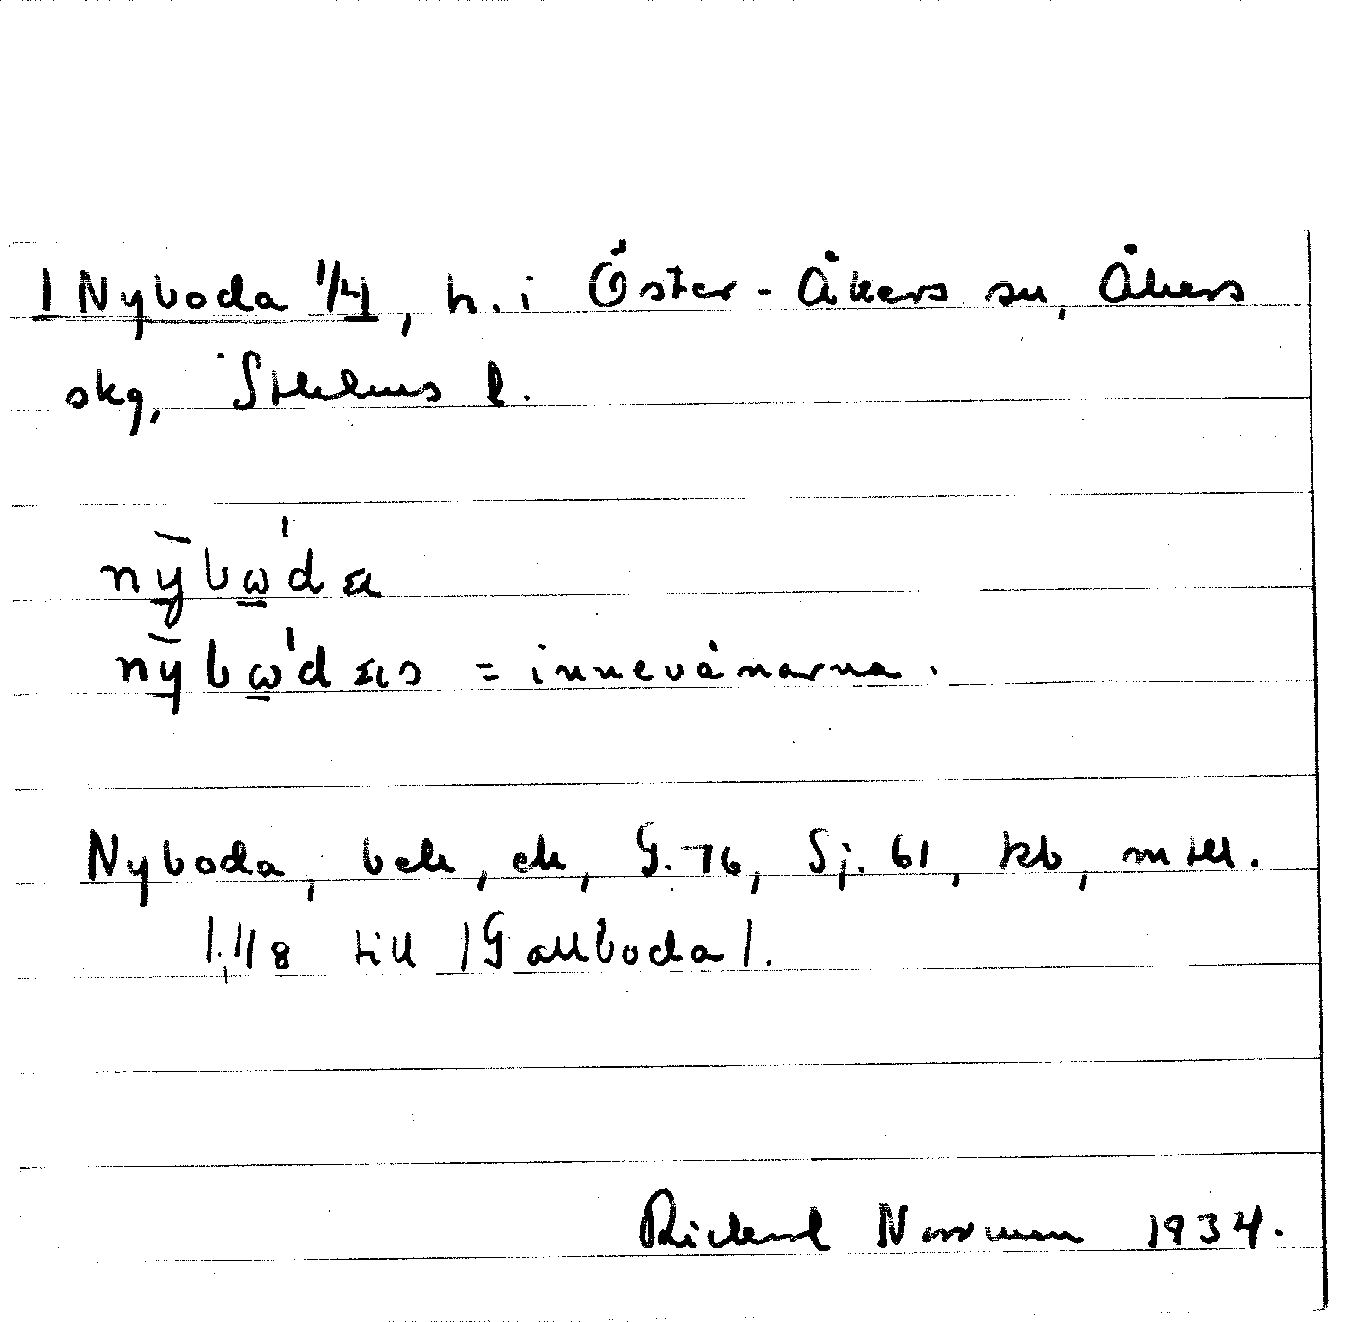 1 Nyboda 1/4, h. i Öster-Åkers sn, Åkers
skg, Sthlms l.
nȳbω'da
nȳbω'das = innevånarna.
Nyboda, bek, ek, G. 76, Sj. 61, kb, mtll.
1. 1/8 till |Gallboda|.
Rickard Norrman 1934.